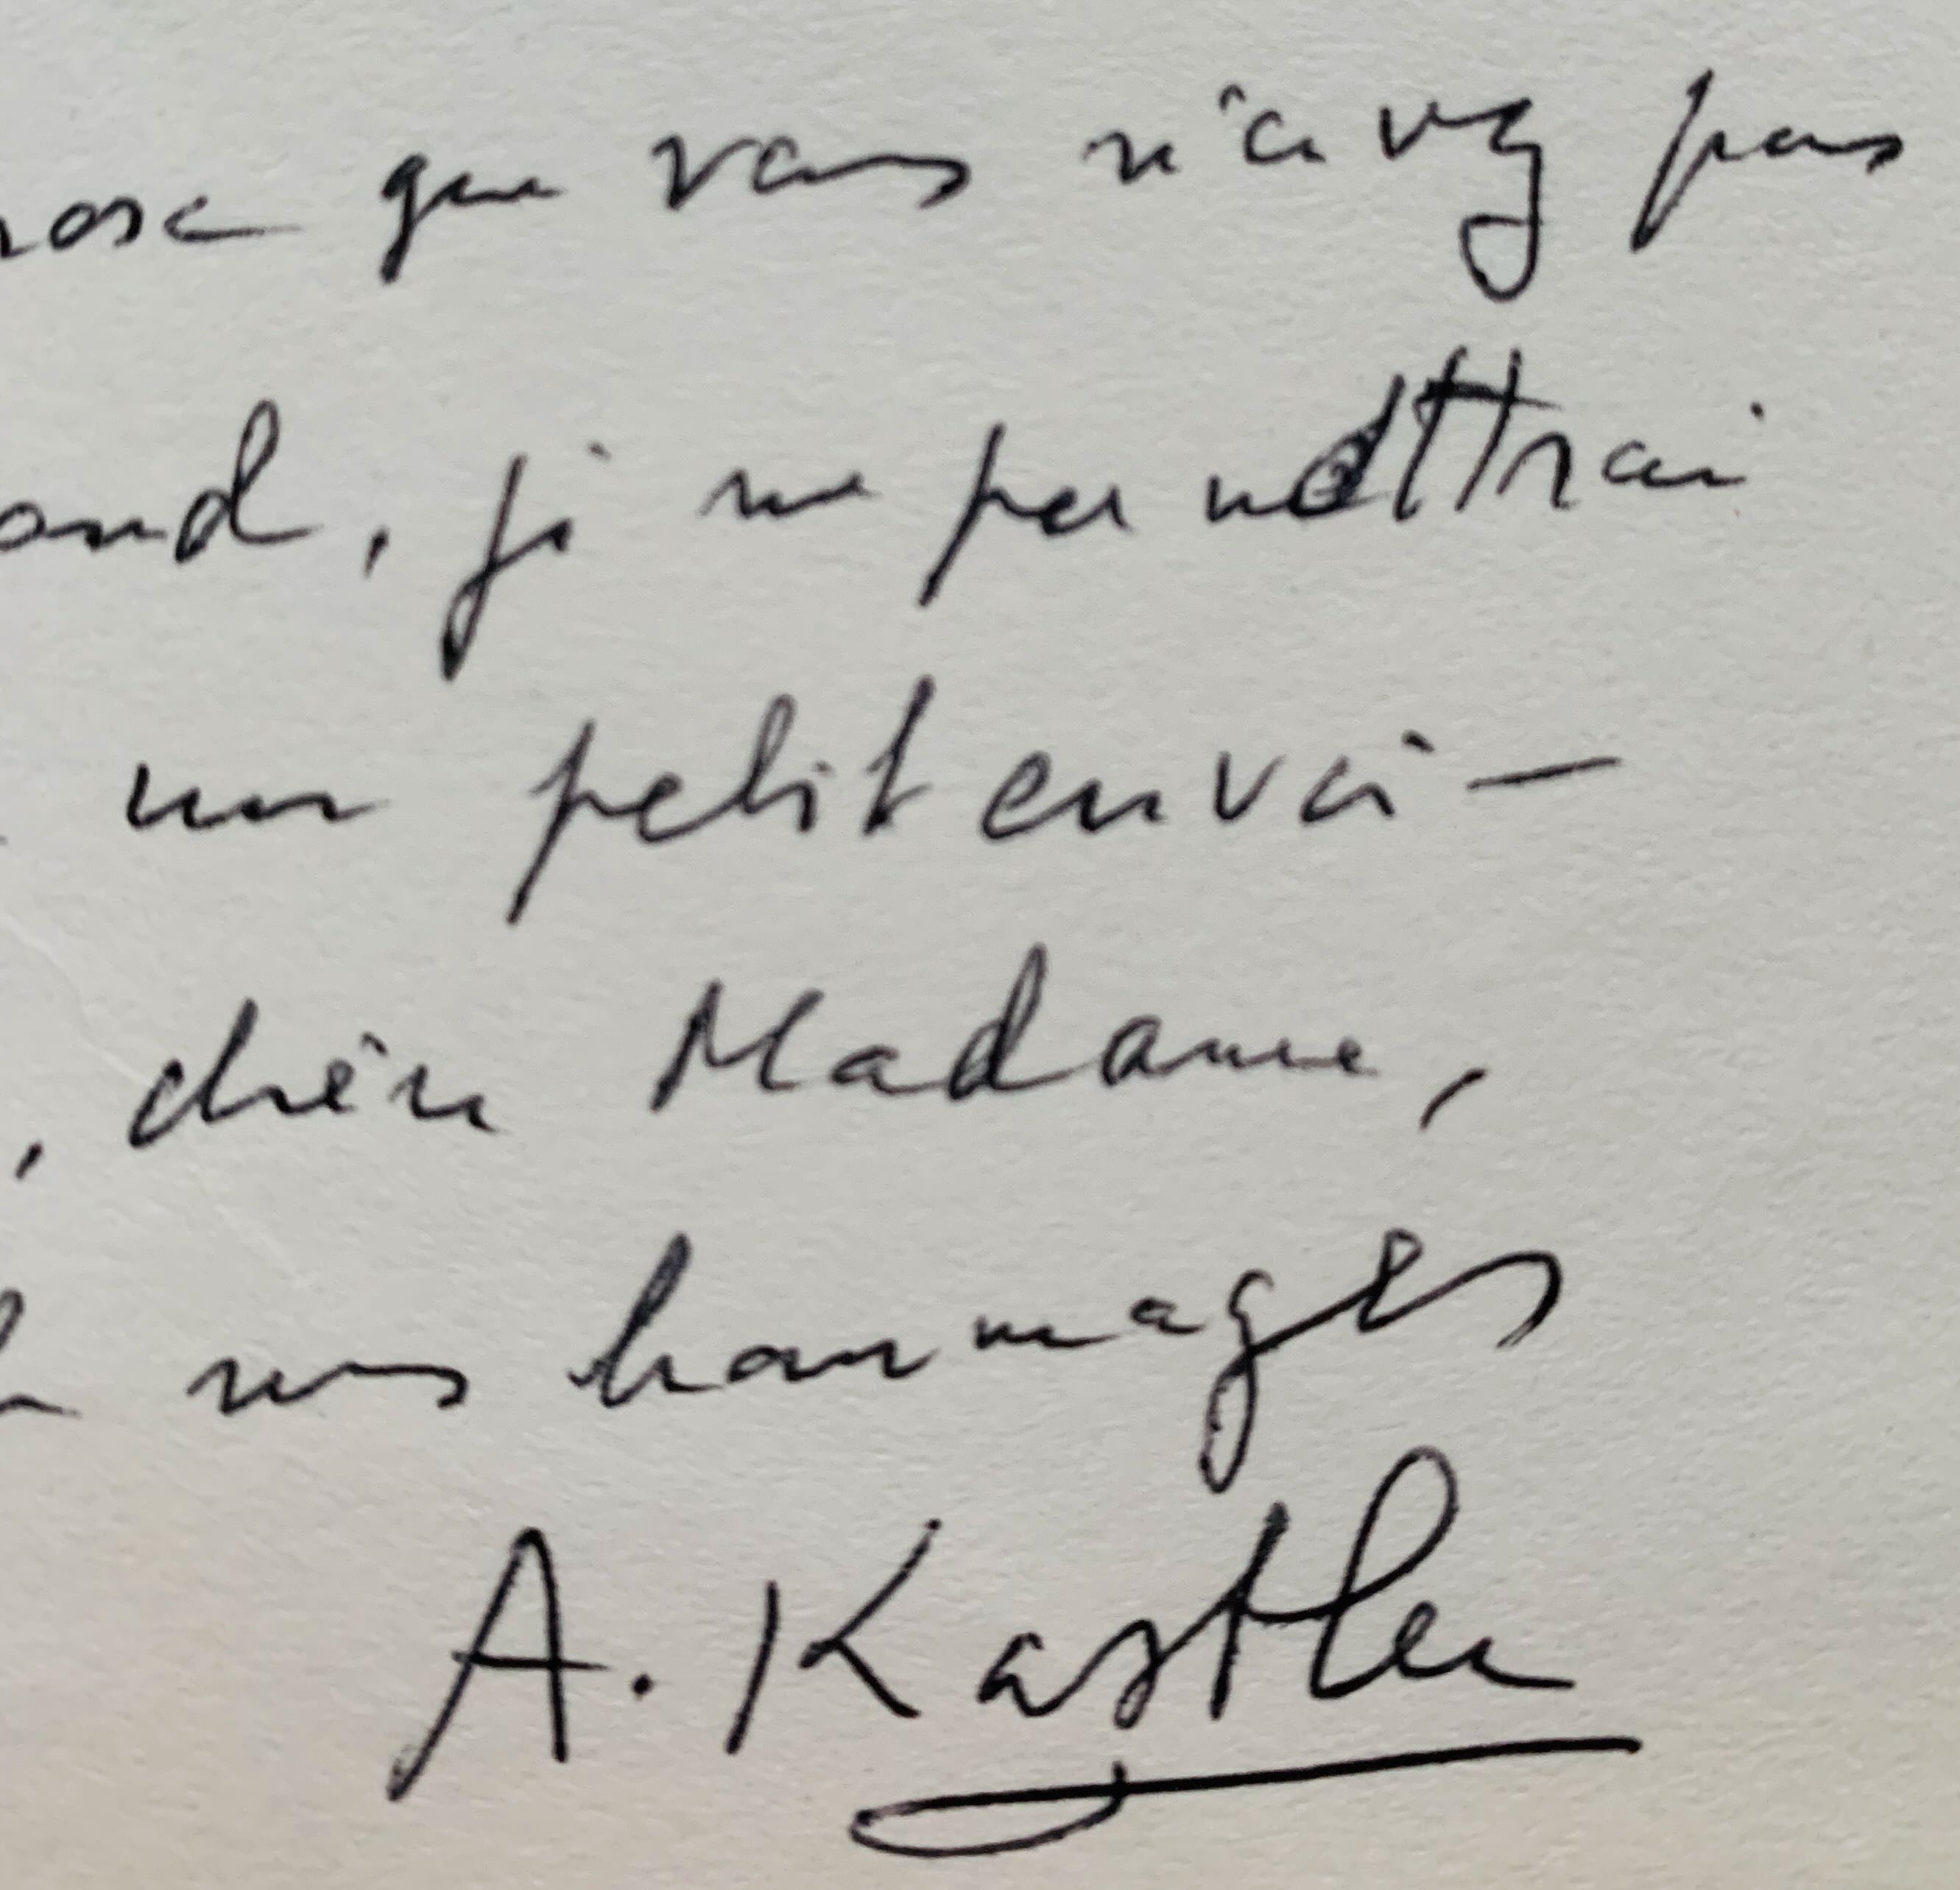 ose que vous n'avez pas
ond, je me permettrai
un petit envoi —
, chère Madame,
mes hommages
A. Kastler